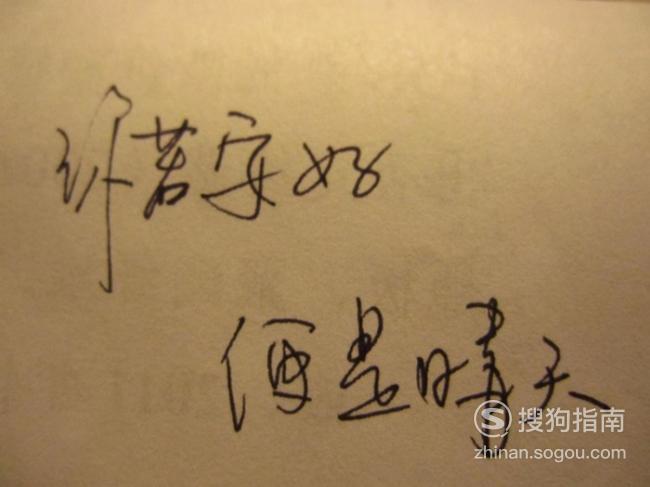 你若安好
便是晴天
搜狗指南
zhinan.sogou.com